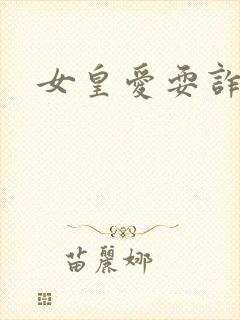 女皇愛耍詐
苗麗娜